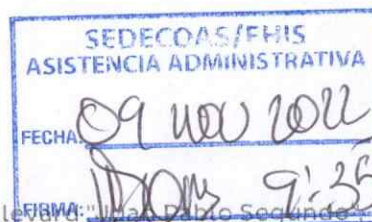 SEDECOAS/FHIS
ASISTENCIA ADMINISTRATIVA
FECHA: 09 nov 2022
FIRMA: 9:35
levard "Juan Pablo Segundo"